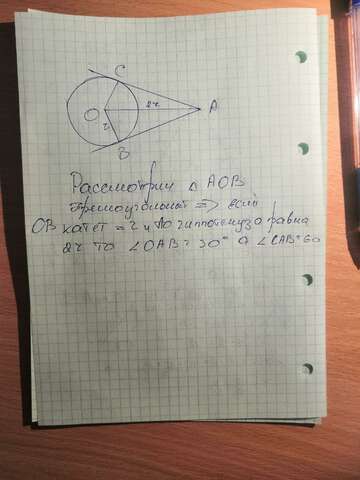 C
O 2r A
r
B
Рассмотрим △ AOB
прямоугольный => если
OB катет = r и AO гиппотенуза равна
2r то ∠OAB = 30° а ∠CAB = 60